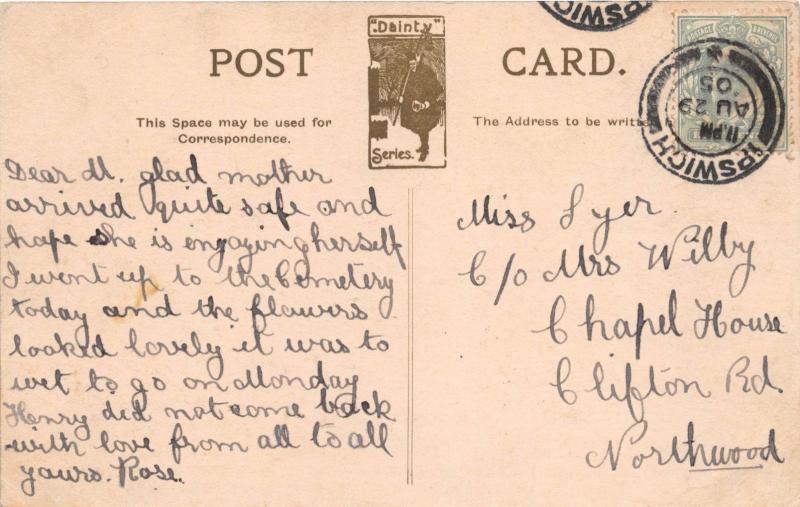 "Dainty"
Series.
POST CARD.
This Space may be used for
Correspondence.
The Address to be writte
IPSWICH
11.PM
AU 29
05
IPSWICH
Dear M. glad mother
arrived quite safe and
hope she is engoying herself
I went up to the Cemetery
today and the flowers
looked lovely it was to
wet to go on Monday
Henry did not come back
with love from all to all
yours. Rose.
Miss Syer.
C/o Mrs Wilby
Chapel House
Clifton Rd.
Northwood